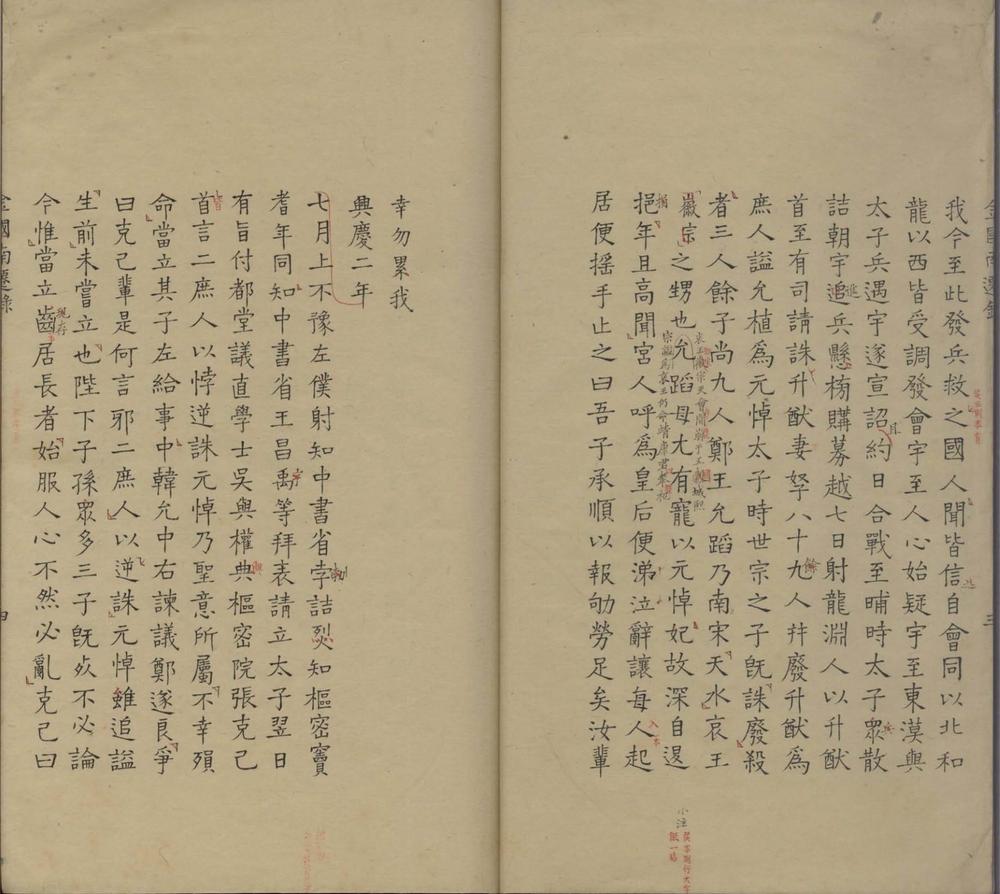 我今至此發兵救之國人聞皆信自會同以北和
龍以西皆受調發會宇至人心始疑宇至東漠與
太子兵遇宇遂宣詔約日合戰至晡時太子眾散
詰朝宇追兵懸榜購募越七日射龍淵人以升猷
首至有司請誅升猷妻孥八十九人并廢升猷為
庶人謚允植為元悼太子時世宗之子既誅廢殺
者三人餘子尚九人鄭王允蹈乃南宋天水哀王
徽宗之甥也允蹈母尤有寵以元悼妃故深自退
挹年且高聞宮人呼為皇后便涕泣辭讓每人起
居便搖手止之曰吾子承順以報劬勞足矣汝輩
小注
三
幸勿累我
興慶二年
七月上不豫左僕射知中書省孛詰烈知樞密竇
耆年同知中書省王昌禹等拜表請立太子翌日
有旨付都堂議直學士吳與權典樞密院張克己
首言二庶人以悖逆誅元悼乃聖意所屬不幸殞
命當立其子左給事中韓允中右諫議鄭遂良爭
曰克己輩是何言邪二庶人以逆誅元悼雖追謚
生前未嘗立也陛下子孫眾多三子既歿不必論
今惟當立齒居長者始服人心不然必亂克己曰
金國南遷錄
四